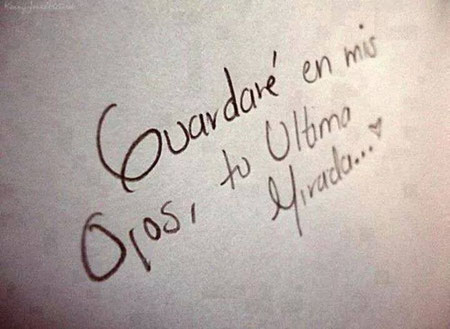 Guardaré en mis
Ojos, tu Ultima
Mirada...